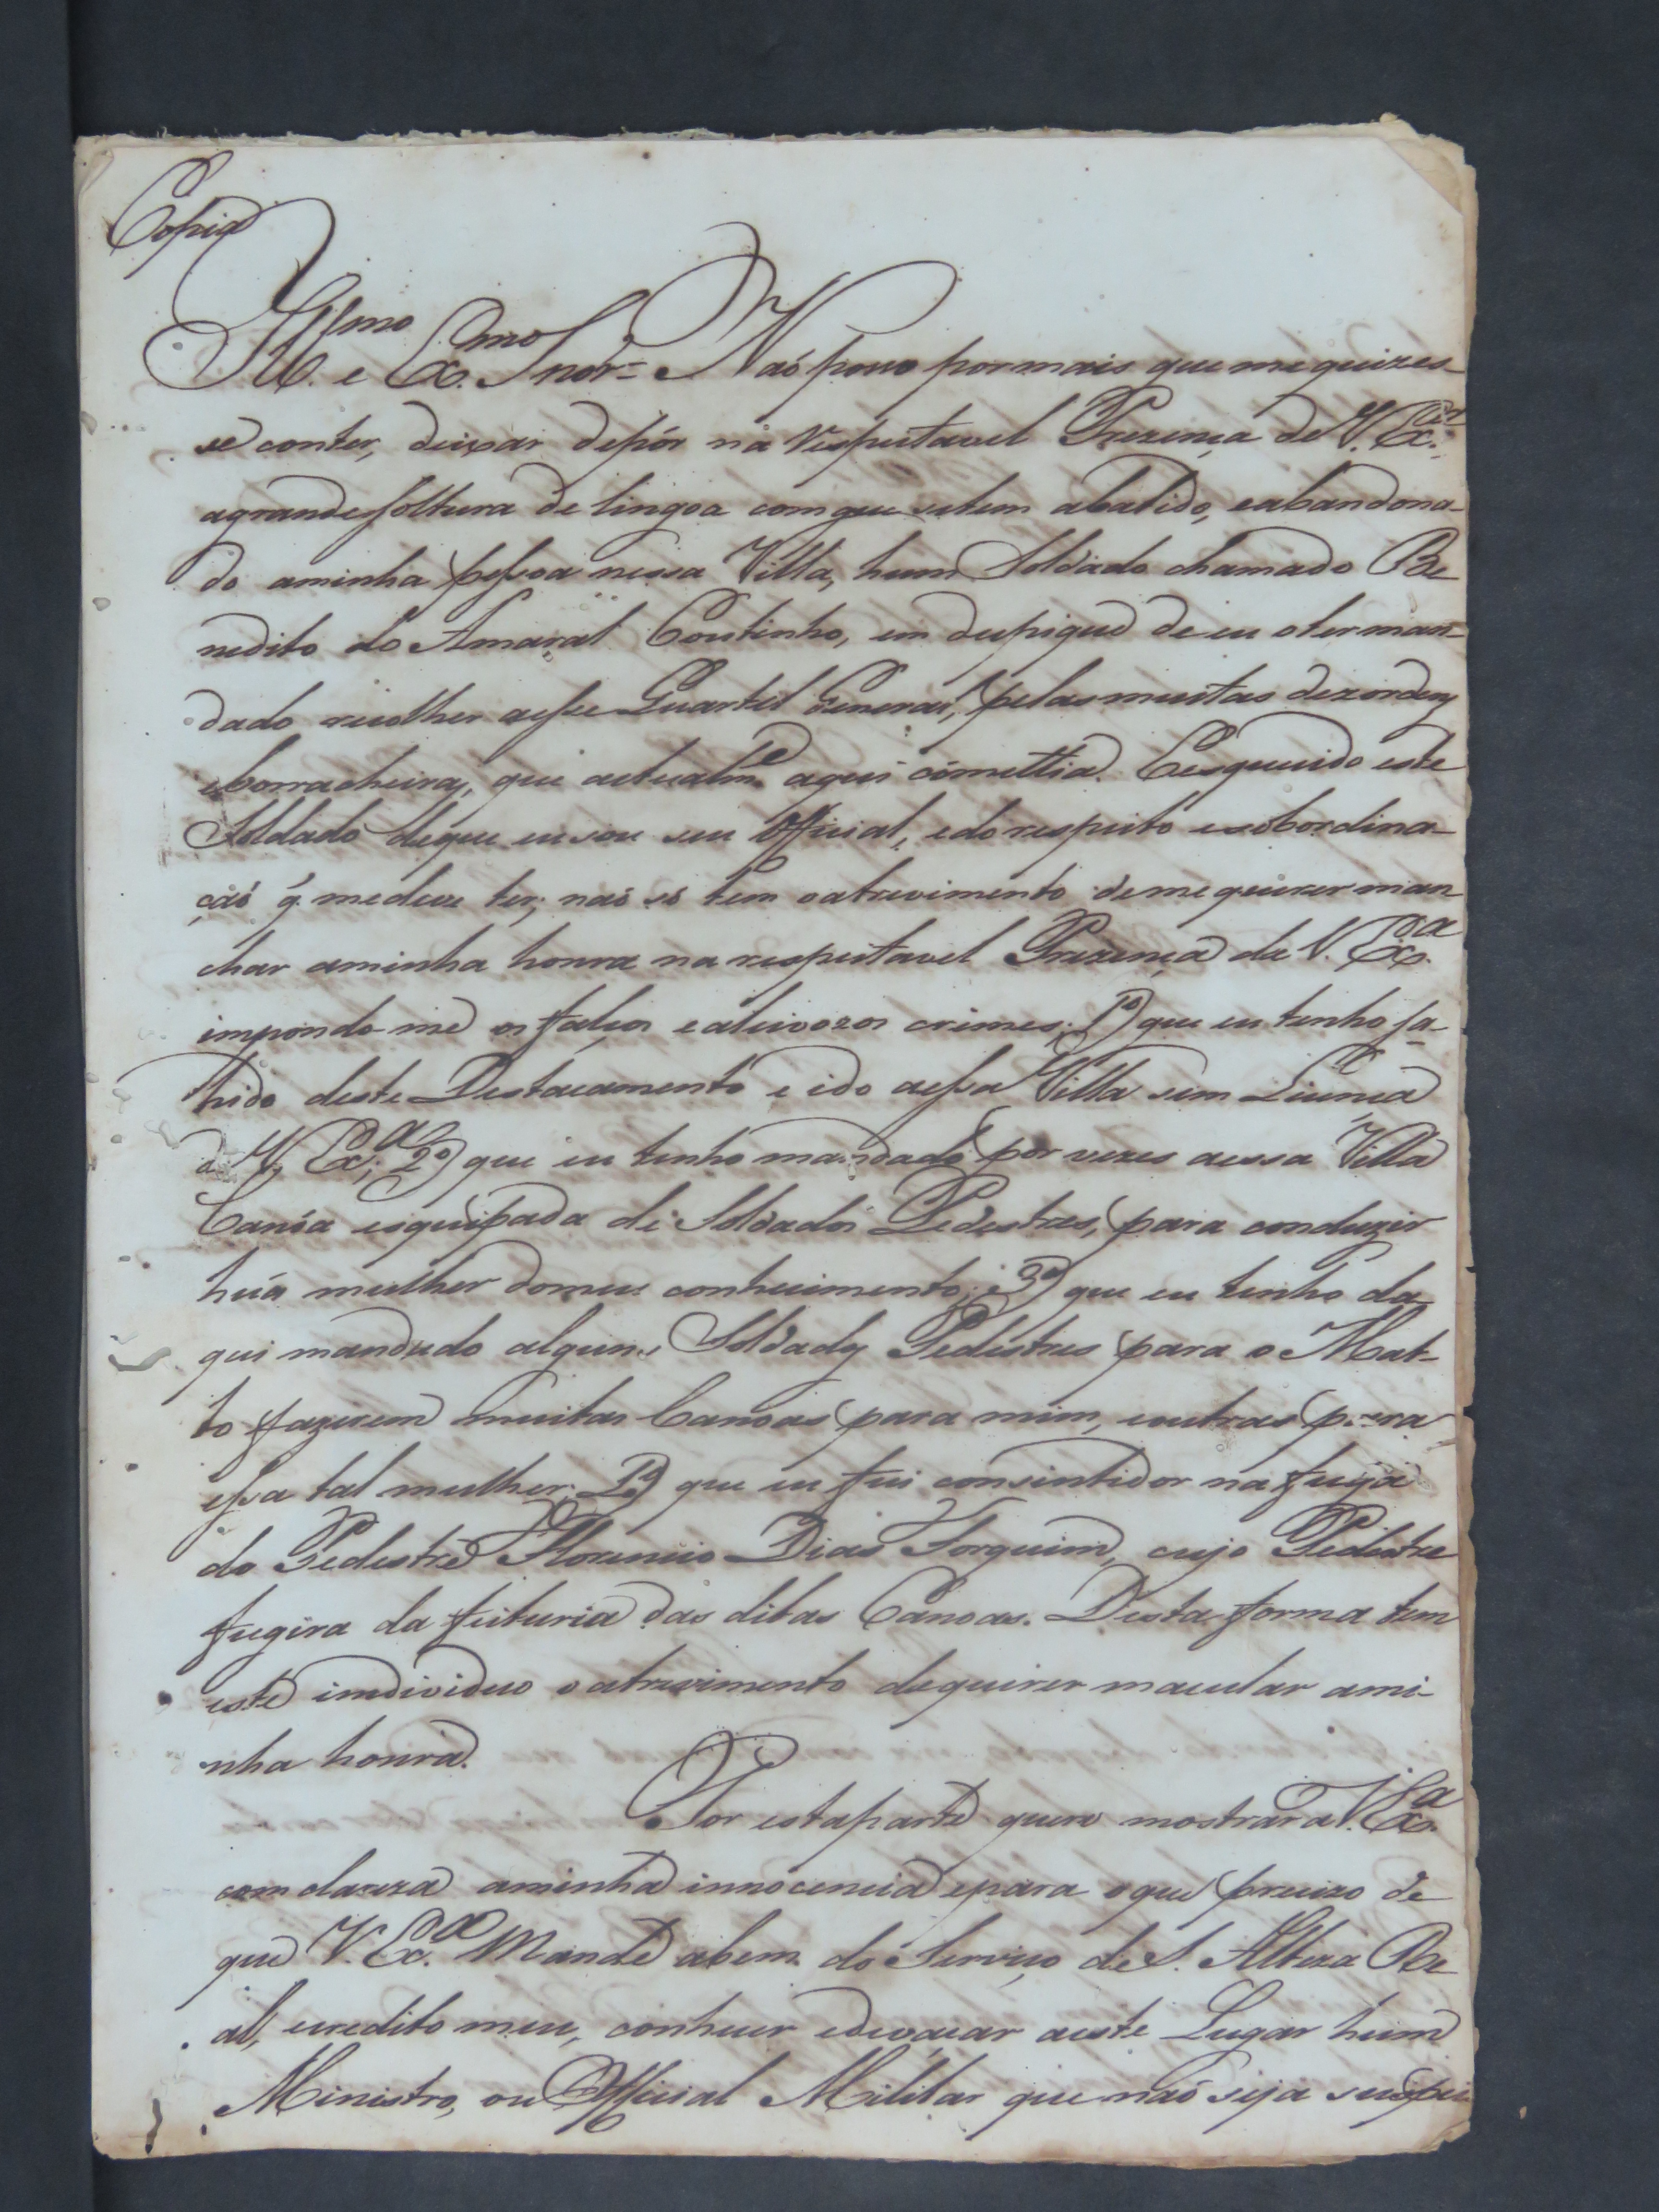 Copia
Ill.mo e Ex.mo Snor = Naó posso por mais que me quizes-
se conter, deixar depôr na respeitavel Prezença de V. Ex.cia
agrande soltura de lingoa com que setem abatido, eabandona-
do aminha pessoa nessa Villa, hum Soldado chamado Be
nedito do Amaral Coutinho, em despique de eu oter man-
dado recolher aesse Quartel General, pelas muitas dezordens
eborracheiras, que actualm.e aqui comettia. Esquecido este
Soldado deque eu sou seu Official, edo respeito esobordina-
çaó q̃ medeve ter; naó só tem oatrevimento deme querer man
char aminha honra na respeitavel Prezença de V. Ex.a
impondo-me os falsos ealeivozos crimes; 1º) que eu tenho sa-
hido deste Destacamento e ido aessa Villa sem Licença
de V. Ex.a; 2º) que eu tenho mandado por vezes aessa Villa
Canóa esquipada de Soldados Pedestres, para conduzir
huá mulher domeu conhecimento; e 3º) que eu tenho da
qui mandado alguns Soldados Pedestres para o Mat-
to fazerem muitas Canoas para mim, eoutras para
essa tal mulher: que eu fui consintidor na fuga
do Pedestre Florencio Dias Forquim, cujo Pedestre
fugira da feituria das ditas Canoas. Desta forma tem
este individuo oatrevimento dequerer macular ami-
nha honra.
Por estaparte quero mostrar a V. Ex.a
com clareza aminha innocencia epara oque precizo de
que V. Ex.a Mande abem do Serviço de S. Alteza Re
al, ecredito meu, conhecer edevaçar aeste Lugar hum
Ministro, ou Official Militar que naó seja suspei